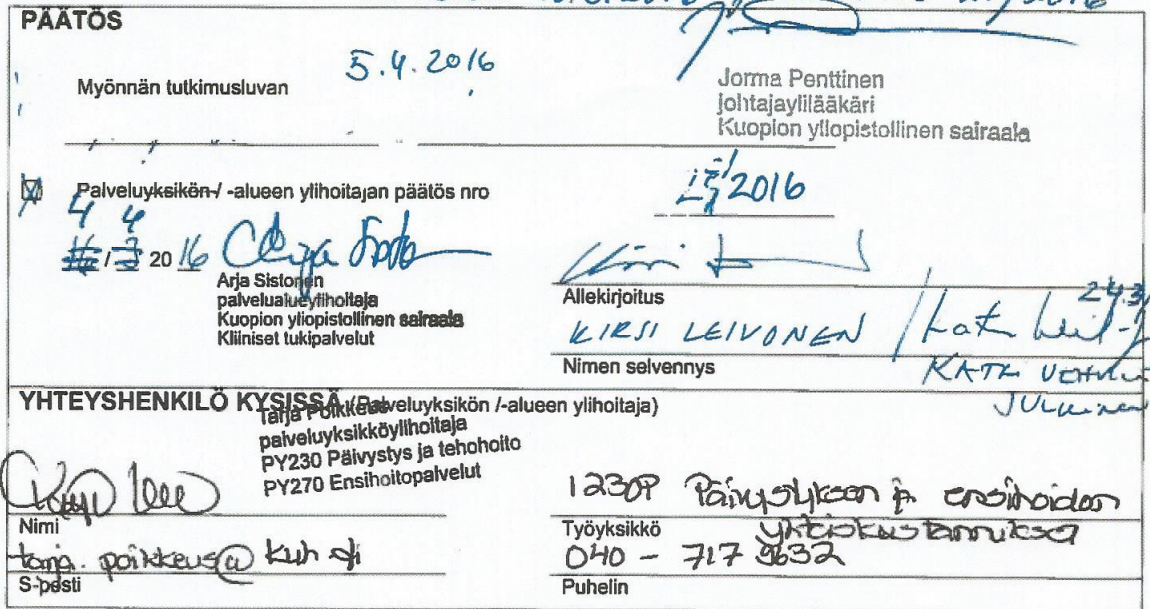 PÄÄTÖS
Myönnän tutkimusluvan 5.4.2016
Jorma Penttinen
johtajaylilääkäri
Kuopion yliopistollinen sairaala
Palveluyksikön-/ -alueen ylihoitajan päätös nro
2016
4 4
/ 20 16
Arja Sistonen
palvelualueylihoitaja
Kuopion yliopistollinen sairaala
Kliiniset tukipalvelut
Allekirjoitus
KIRSI LEIVONEN
24.3
Nimen selvennys
KATRI
YHTEYSHENKILÖ KYSISSÄ (Palveluyksikön /-alueen ylihoitaja)
Tarja Poikkeus
palveluyksikköylihoitaja
PY230 Päivystys ja tehohoito
PY270 Ensihoitopalvelut
Nimi
1230P Päivystyksen ja ensihoidon
yhteiskustannukset
Työyksikkö
tarja.poikkeus@kuh.fi
S-posti
040 - 717 9632
Puhelin